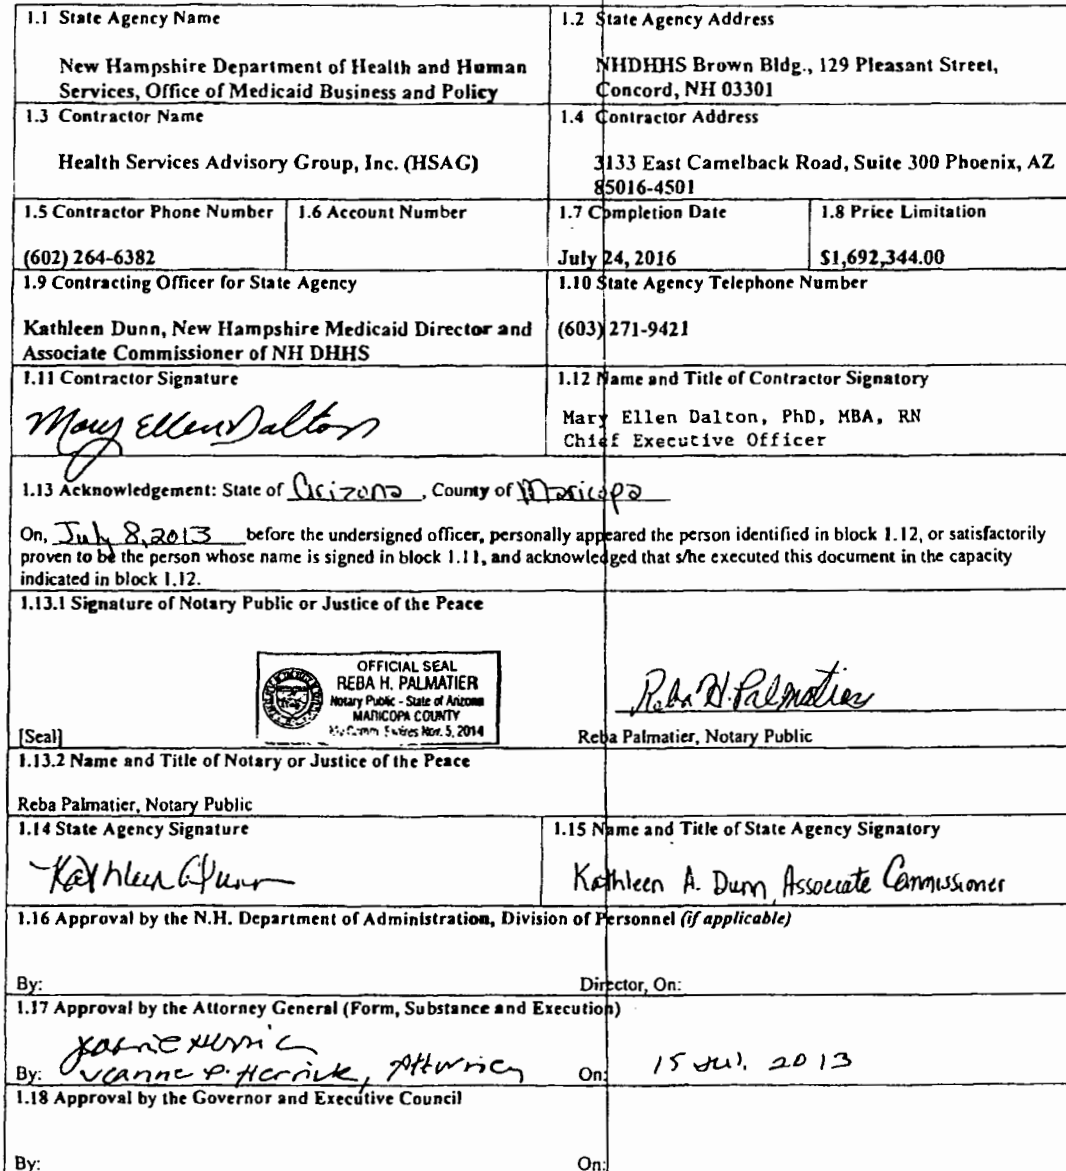 1.1 State Agency Name
New Hampshire Department of Health and Human
Services, Office of Medicaid Business and Policy
1.2 State Agency Address
NHDHHS Brown Bldg., 129 Pleasant Street,
Concord, NH 03301
1.3 Contractor Name
Health Services Advisory Group, Inc. (HSAG)
1.4 Contractor Address
3133 East Camelback Road, Suite 300 Phoenix, AZ
85016-4501
1.5 Contractor Phone Number
(602) 264-6382
1.6 Account Number
1.7 Completion Date
July 24, 2016
1.8 Price Limitation
$1,692,344.00
1.9 Contracting Officer for State Agency
Kathleen Dunn, New Hampshire Medicaid Director and
Associate Commissioner of NH DHHS
1.10 State Agency Telephone Number
(603) 271-9421
1.11 Contractor Signature
Mary Ellen Dalton
1.12 Name and Title of Contractor Signatory
Mary Ellen Dalton, PhD, MBA, RN
Chief Executive Officer
1.13 Acknowledgement: State of Arizona, County of Maricopa
On, July 8, 2013 before the undersigned officer, personally appeared the person identified in block 1.12, or satisfactorily
proven to be the person whose name is signed in block 1.11, and acknowledged that s/he executed this document in the capacity
indicated in block 1.12.
1.13.1 Signature of Notary Public or Justice of the Peace
OFFICIAL SEAL
REBA H. PALMATIER
Notary Public - State of Arizona
MARICOPA COUNTY
My Comm. Expires Nov. 5, 2014
Reba H. Palmatier
[Seal]
Reba Palmatier, Notary Public
1.13.2 Name and Title of Notary or Justice of the Peace
Reba Palmatier, Notary Public
1.14 State Agency Signature
Kathleen A Dunn
1.15 Name and Title of State Agency Signatory
Kathleen A. Dunn, Associate Commissioner
1.16 Approval by the N.H. Department of Administration, Division of Personnel (if applicable)
By: Director, On:
1.17 Approval by the Attorney General (Form, Substance and Execution)
By: Jeanne P. Herrick, Attorney On: 15 Jul. 2013
1.18 Approval by the Governor and Executive Council
By: On: